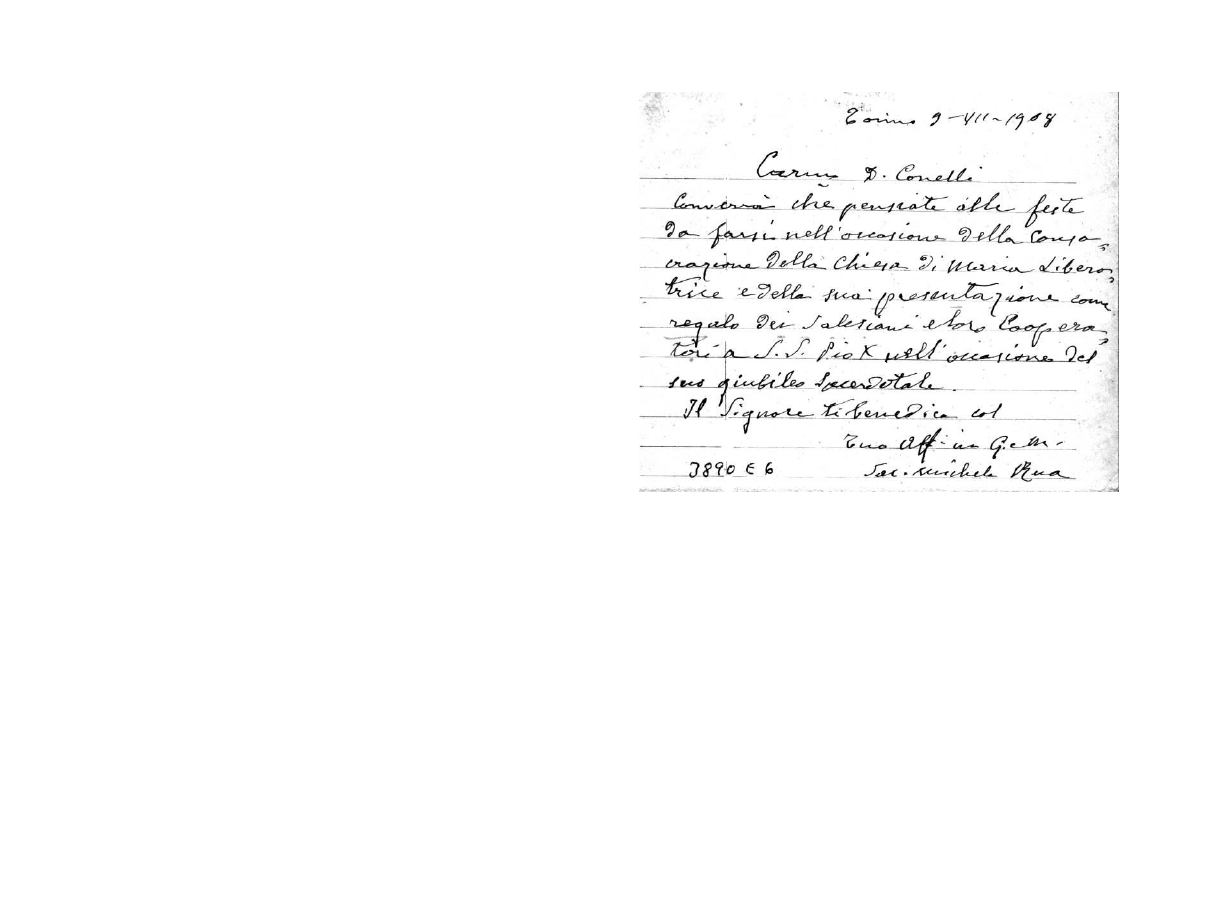 Torino 9-VII-1908
Carmo D. Conelli
Converrà che pensiate alle feste
da farsi nell'occasione della consa=
crazione della Chiesa di Maria Libera=
trice e della sua presentazione come
regalo dei Salesiani e loro Coopera=
tori a S.S. Pio X nell'occasione del
suo giubileo Sacerdotale.
Il Signore ti benedica col
Tuo Aff. in G. e M.
3890 E 6 Sac. Michele Rua